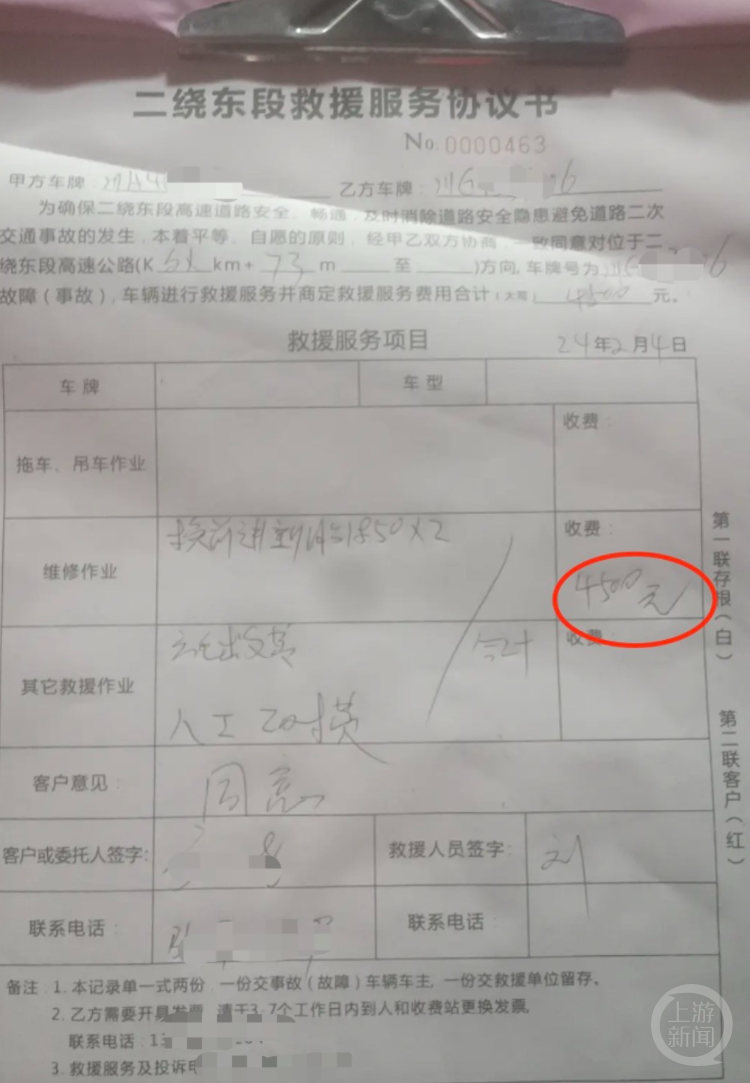 二绕东段救援服务协议书
No. 0000463
甲方车牌： 乙方车牌：川G 6
为确保二绕东段高速道路安全、畅通，及时消除道路安全隐患避免道路二次
交通事故的发生，本着平等、自愿的原则，经甲乙双方协商，一致同意对位于二
绕东段高速公路(K km+ 73 m 至 )方向，车牌号为 川G 6
故障（事故），车辆进行救援服务并商定救援服务费用合计（大写） 4500 元。
救援服务项目 24年2月4日
车牌 车型
拖车、吊车作业 收费：
维修作业 换前进 1850×2 收费： 4500元
其它救援作业 人工 合计 收费：
客户意见： 同意
客户或委托人签字： 救援人员签字： 刘
联系电话： 联系电话：
备注：1. 本记录单一式两份，一份交事故（故障）车辆车主，一份交救援单位留存。
2. 乙方需要开具发票，请于3-7个工作日内到人和收费站更换发票。
联系电话：1
3. 救援服务及投诉
第一联存根（白） 第二联客户（红）
上游新闻